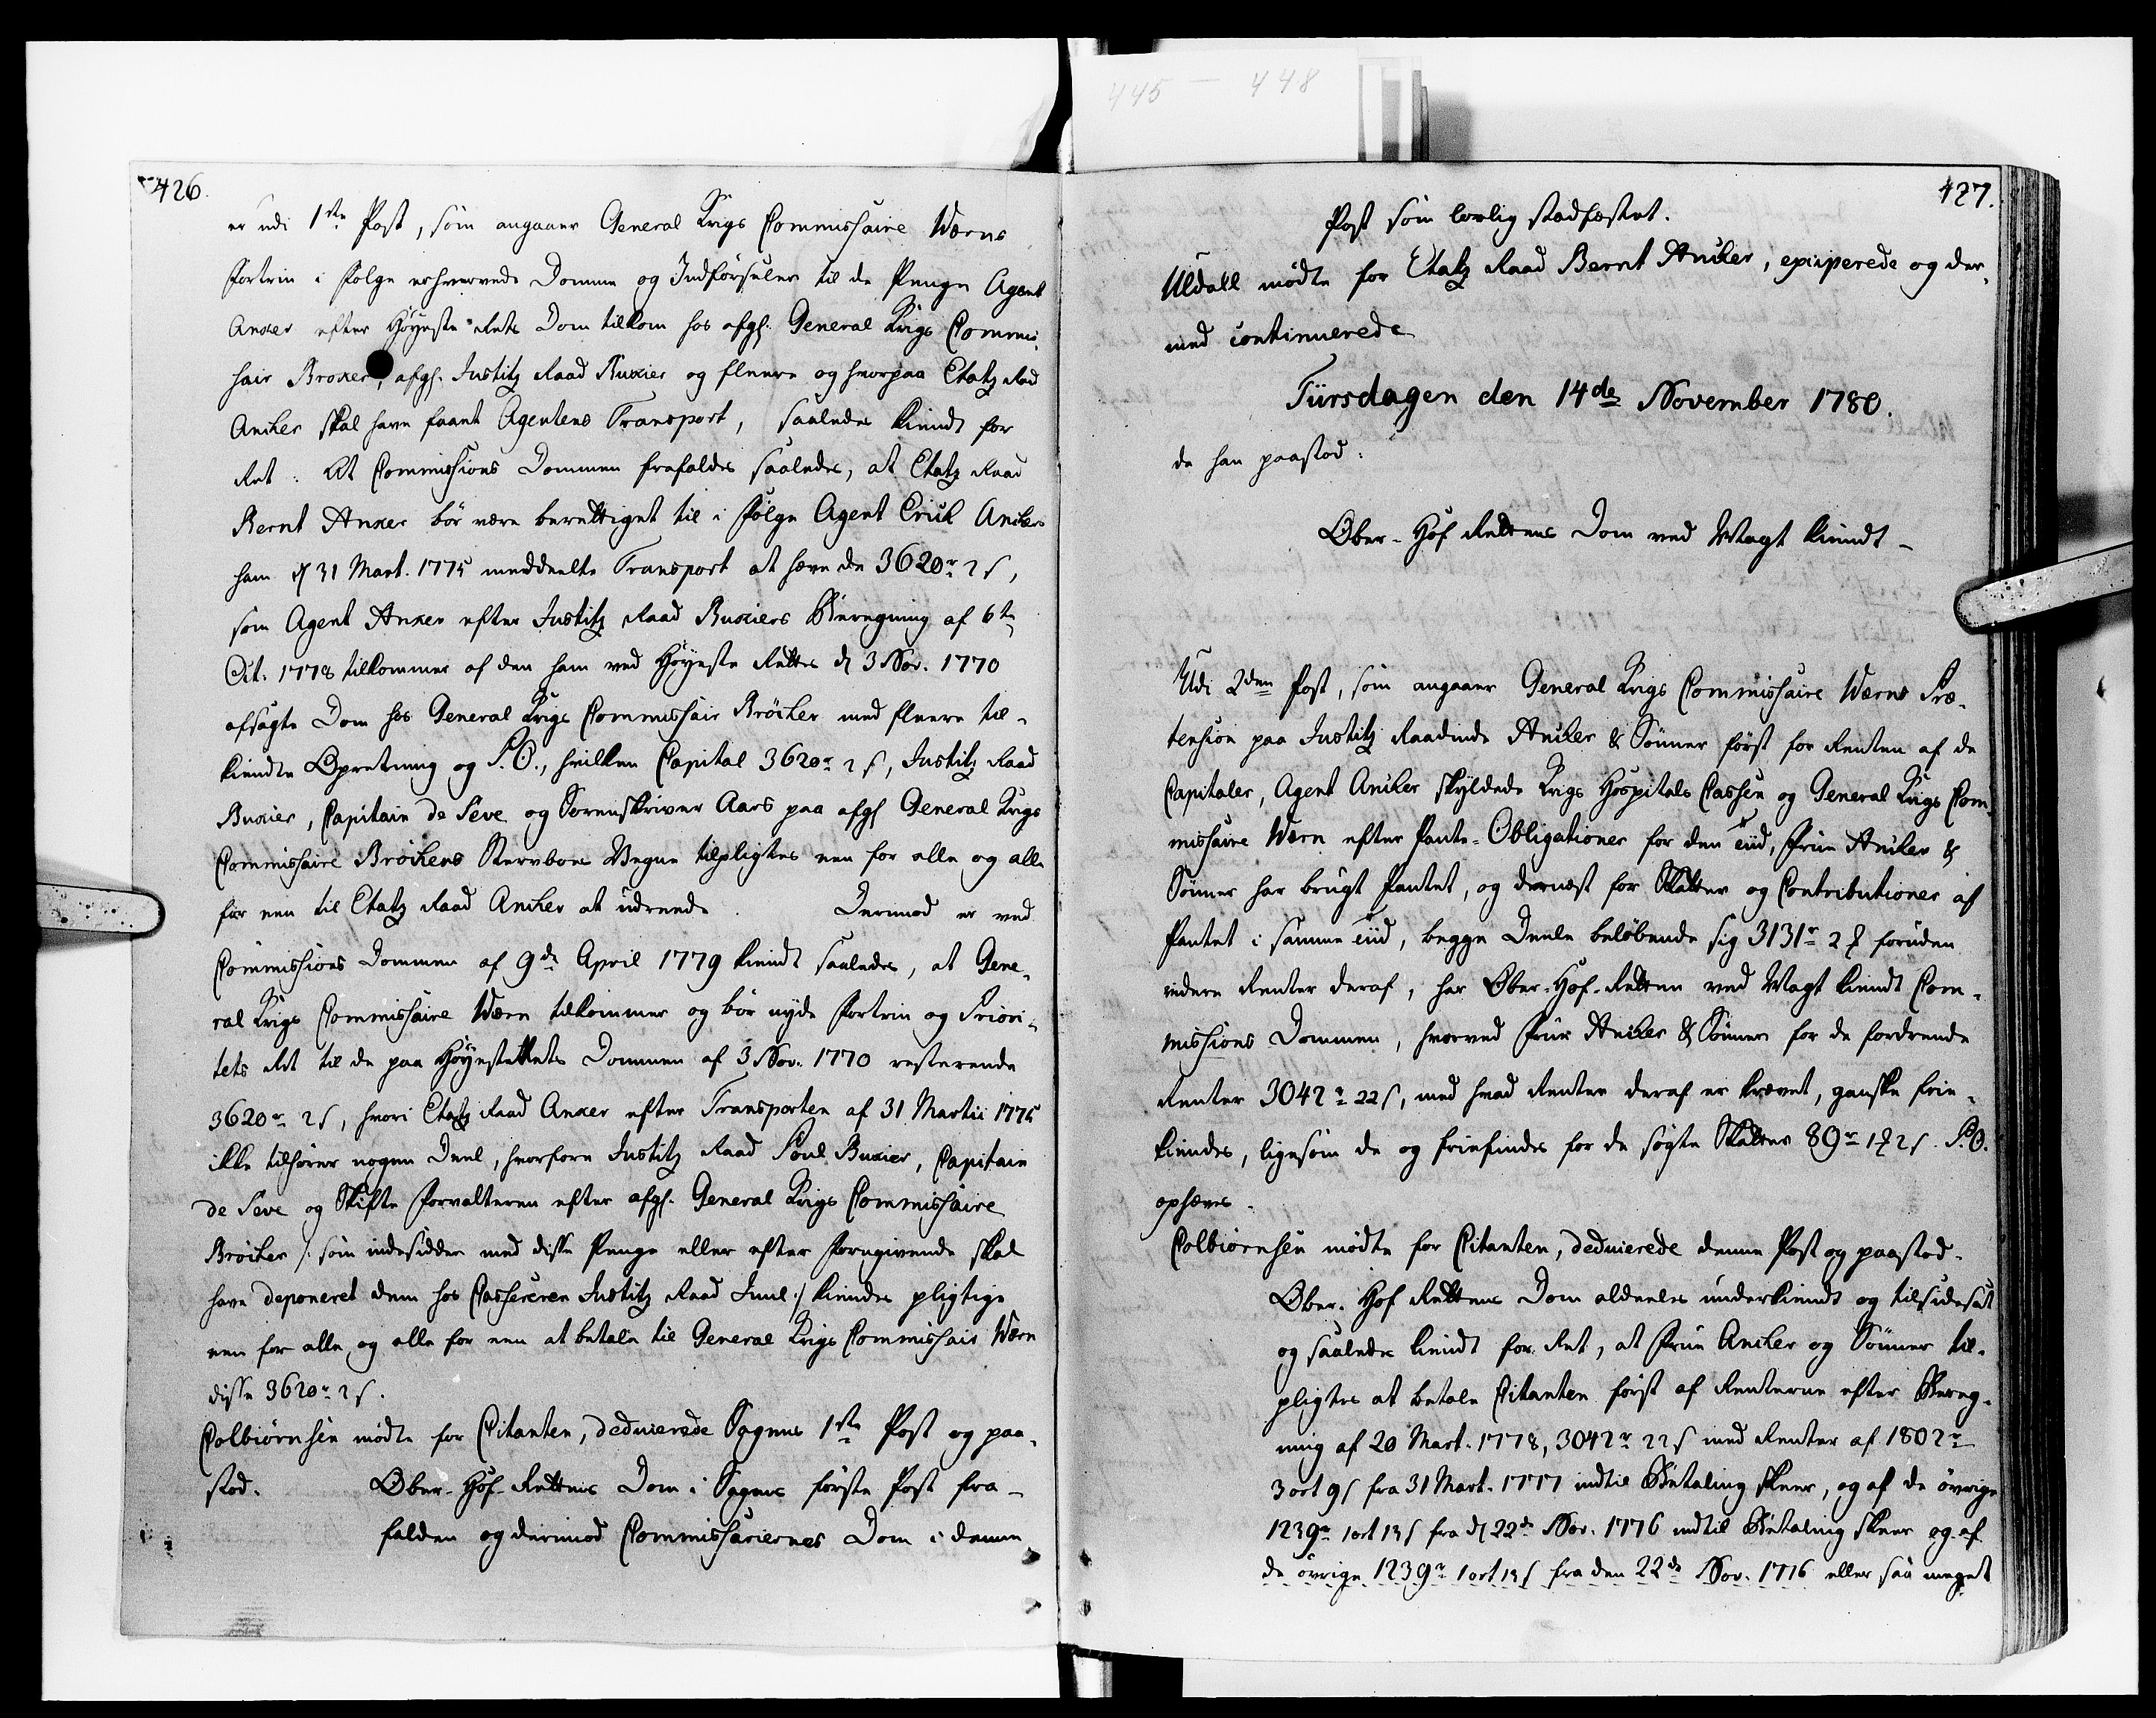 445 — 448
426.
er udi 1ste Post, som angaaer General Krigs Commissaire Wærns
Fortrin i Følge erhvervede Domme og Indførseler til de Penge Agent
Anker efter Høyeste Rets Dom tilkom hos afgl. General Krigs Commis-
sair Brøker, afgl. Justitz Raad Buxier og fleere og hvorpaa Etatz Raad
Anker skal have faaet Agentens Transport, saaledes kiendt for
Ret: At Commissions Dommen frafaldes saaledes, at Etatz Raad
Bernt Anker bør være berettiget til i Følge Agent Erich Ankers
ham d 31 Mart. 1775 meddeelte Transport at hæve de 3620r 2 s,
som Agent Anker efter Justitz Raad Buxiers Beregning af 6te
Oct. 1778 tilkommer af den ham ved Høyeste Rettes d 3 Nov. 1770
afsagte Dom hos General Krigs Commissair Bröcker med fleere til-
kiendte Opretning og S.O., hvilken Capital 3620r 2 s, Justitz Raad
Buxier, Capitain de Seve og Sorenskriver Aars paa afgl General Krigs
Commissaire Bröckers Sterboes Vegne tilpligtes een for alle og alle
for een til Etatz Raad Ancker at udrede. Derimod er ved
Commissions Dommen af 9de April 1779 kiendt saaledes, at Gene-
ral Krigs Commissaire Wærn tilkommer og bør nyde Fortrin og Priori-
tets Ret til de paa Høyesterets Dommen af 3 Nov. 1770 resterende
3620r 2 s, hvori Etatz Raad Anker efter Transporten af 31 Martii 1775
ikke tilhører nogen Deel, hvorfore Justitz Raad Poul Buxier, Capitain
de Seve og Skifte Forvalteren efter afgl. General Krigs Commissaire
Bröcker /: som indesidder med disse Penge eller efter Foregivende skal
have deponeret dem hos Casserer Justitz Raad Juul :/ kiendes pligtige
een for alle og alle for een at betale til General Krigs Commissair Wærn
disse 3620r 2 s.
Colbiörnsen mödte for Citanten, deducerede Sagens 1ste Post og paa-
stod. Ober-Hof-Rettens Dom i Sagens første Post fra-
falden og derimod Commissariernes Dom i denne
427.
Post som lovlig stadfæstet.
Uldall mødte for Etatz Raad Bernt Ancker, exciperede og der-
med continuerede
Tiirsdagen den 14de November 1780.
da han paastod:
Ober-Hof Rettens Dom ved Magt kiendt -
Udi 2den Post, som angaaer General Krigs Commissaire Wærns Præ-
tension paa Justitz Raadinde Ancker & Sønner først for Renten af de
Capitaler, Agent Ancker skyldede Krigs Hospitals Cassen og General Krigs Com-
missaire Wærn efter Pante-Obligationer for den Tiid, Frue Ancker &
Sønner har brugt Pantet, og dernæst for Skatter og Contributioner af
Pantet i samme Tiid, begge Deele beløbende sig 3131r 2 foruden
videre Renter deraf, har Ober-Hof-Retten ved Magt kiendt Com-
missions Dommen, hvorved Frue Ancker & Sønner for de fordrende
Renter 3042r 22 s, med hvad Renter deraf er krævet, ganske frie-
kiendes, ligesom de og friefindes for de søgte Skatter 89r 1 2 s. S.O.
ophæves.
Colbiörnsen mödte for Citanten, deducerede denne Post og paastod.
Ober. Hof Rettens Dom aldeeles underkiendt og tilsidesat
og saaledes kiendt for Ret, at Frue Ancker og Sønner til-
pligtes at betale Citanten først af Renterne efter Bereg-
ning af 20 Mart. 1778, 3042r 22 s med Renter af 1802r
3 ort 9 s fra 31 Mart. 1777 indtil Betaling skeer, og af de övrige
1239r 1 ort 13 s fra d 22de Nov. 1776 indtil Betaling skeer og af
de övrige 1239r 1 ort 13 s fra den 22de Nov. 1776 eller saa meget